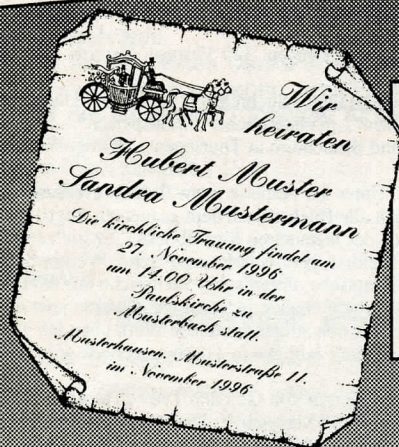 Wir
heiraten
Hubert Muster
Sandra Mustermann
Die kirchliche Trauung findet am
27. November 1996
um 14.00 Uhr in der
Paulskirche zu
Musterbach statt.
Musterhausen, Musterstraße 11,
im November 1996